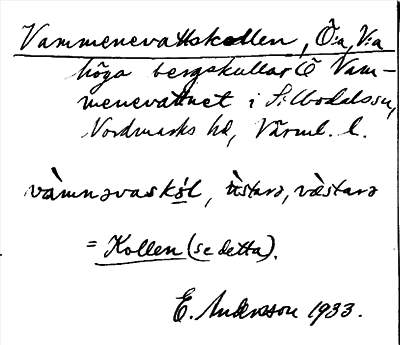 Vammenevattskollen, Ö:a, V:a
höga bergskullar Ö Vam-
menevattnet i Silbodals sn,
Nordmarks hd, Värml. l.
vàmnəvaskòl, ùstarə, væ̀starə
= Kollen (se detta).
E. Andersson 1933.